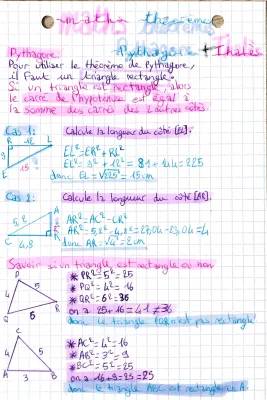 maths théorème
Pythagore + Thalès
Pythagore:
Pour utiliser le théorème de Pythagore,
il faut un triangle rectangle.
Si un triangle est rectangle, alors
le carré de l'hypoténuse est égal à
la somme des carrés des 2 autres côtés.
Cas 1: Calcule la longueur du côté [EL].
R 12 L
9
E 15
EL²=ER²+RL²
EL²=9²+12²=81+144=225
donc EL=√225=15cm
Cas 2: Calcule la longueur du côté [AR].
5,2
A
R
C 4,8
AR²=AC²-CR²
AR²=5,2²-4,8²=27,04-23,04=4
donc AR=√4=2cm
Savoir si un triangle est rectangle ou non
P
4 5
Q 6 R
* PR²=5²=25
* PQ²=4²=16
* QR²=6²=36
on a 25+16=41≠36
donc le triangle PQR n'est pas rectangle
C
4 5
A 3 B
* AC²=4²=16
* AB²=3²=9
* BC²=5²=25
on a 16+9=25=25
donc le triangle ABC est rectangle en A.